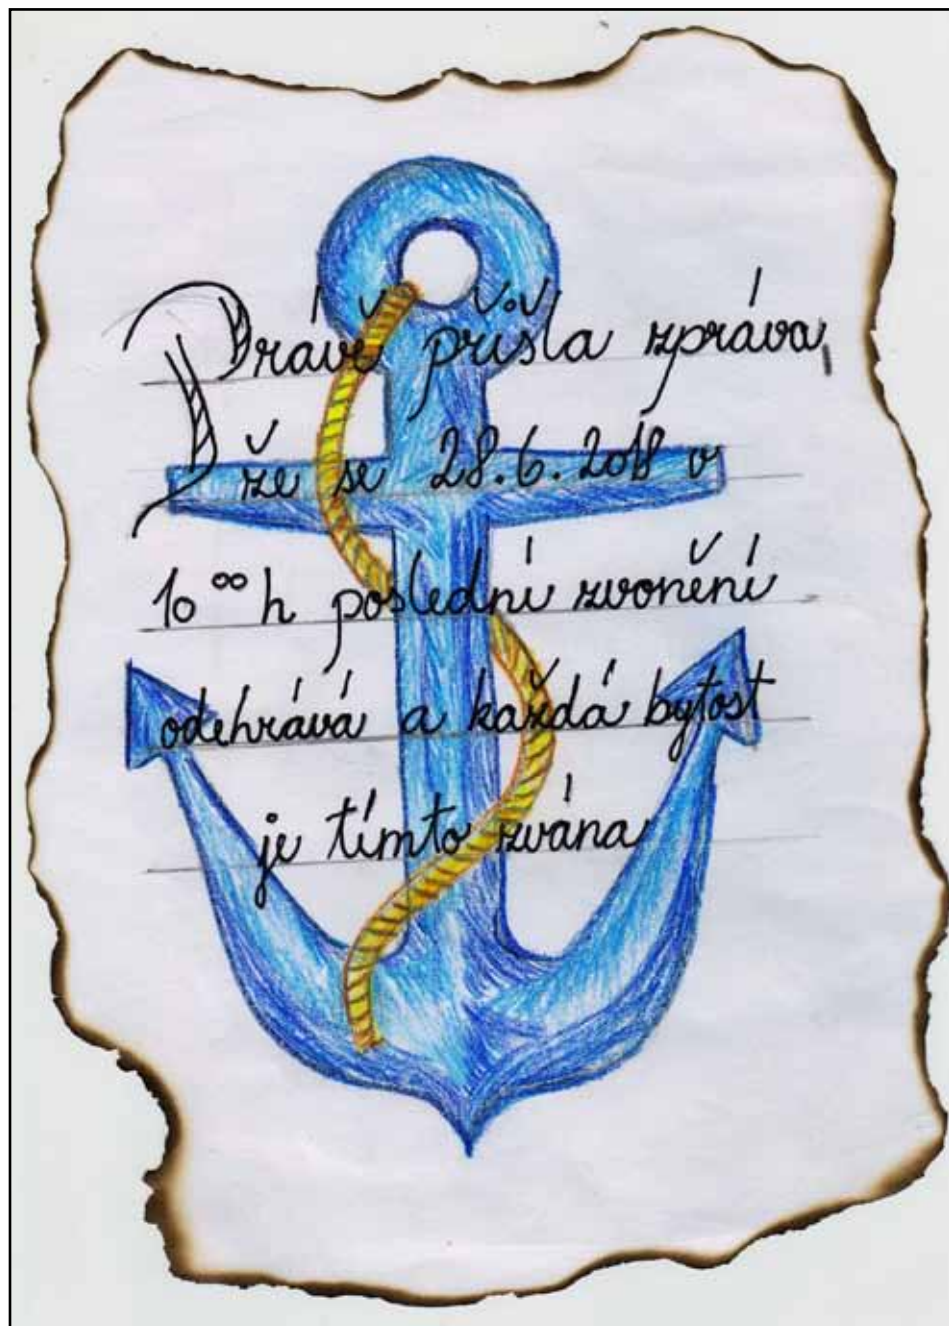 Právě přišla zpráva,
že se 28.6.2018 v
10⁰⁰ h poslední zvonění
odehrává a každá bytost
je tímto zvána